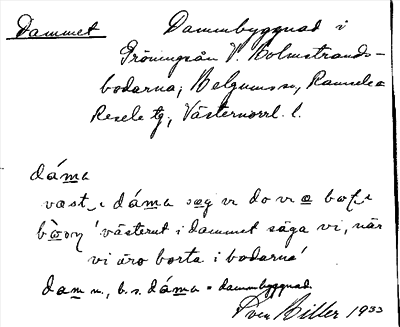 Dammet Dammbyggnad i
Gröningsån V. Holmstrands-
bodarna, Helgums sn, Ramsele o
Resele tg, Västernorrl. l.
dáma
væst i dáma sæg vi do vi æ bot i
bòon 'västerut i dammet säga vi, när
vi äro borta i bodarna'
dam n., b. s. dáma = dammbyggnad.
Sven Hiller 1933